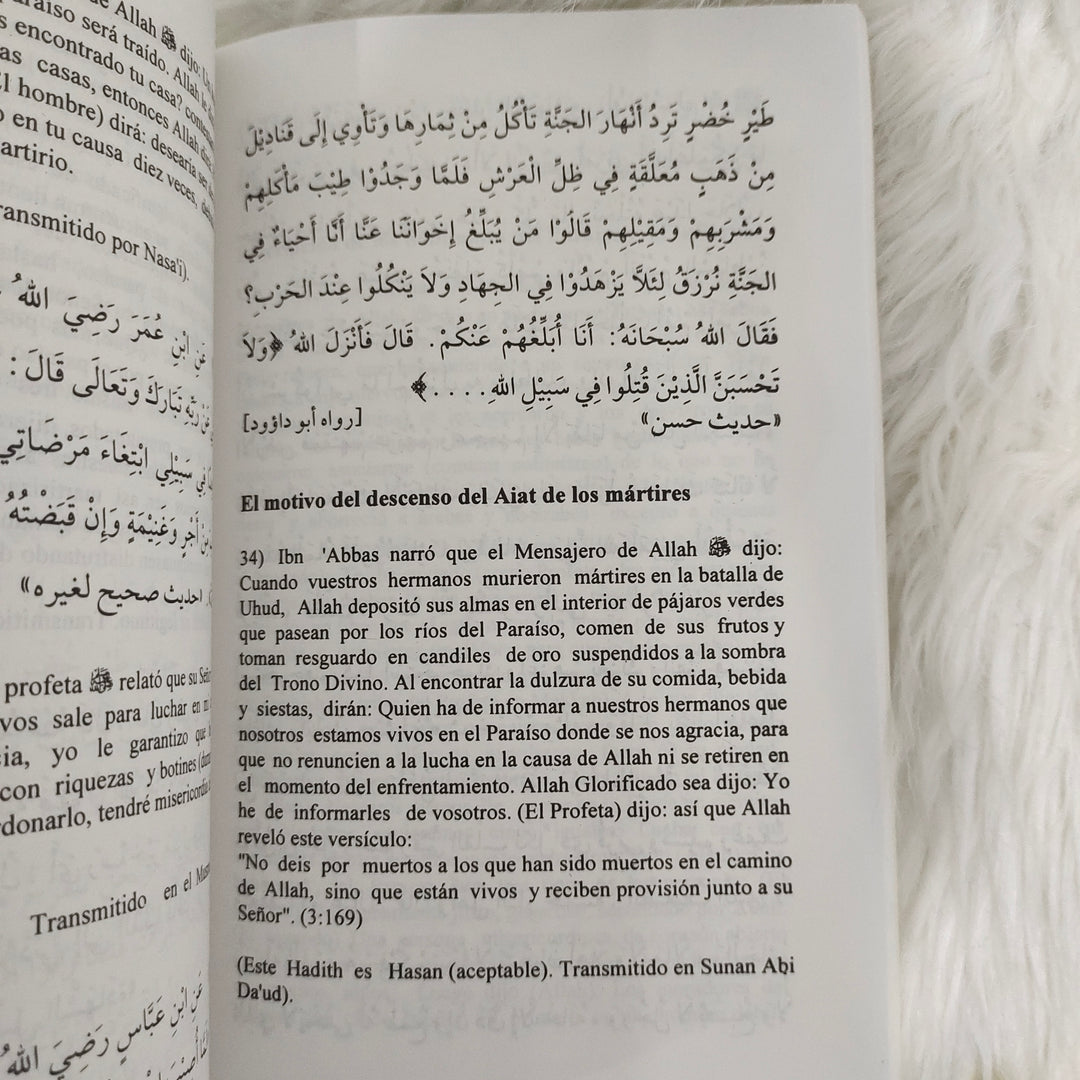 de Allah ﷺ dijo:
paraíso será traído. Allah
encontrado tu casa?
casas, entonces Allah
El hombre) dirá: desearía
en tu causa diez veces,
artirio.
ransmitido por Nasa'i).
عَنِ ابْنِ عُمَرَ رَضِيَ اللهُ
رَبِّهِ تَبَارَكَ وَتَعَالَى قَالَ :
فِي سَبِيْلِي ابْتِغَاءَ مَرْضَاتِي
مِنْ أَجْرٍ وَغَنِيْمَةٍ وَإِنْ قَبَضْتُهُ
حديث صحيح لغيره»
profeta ﷺ relató que su
vos sale para luchar en
cia, yo le garantizo que
con riquezas y botines
donarlo, tendré misericordia
Transmitido en el
عَنِ ابْنِ عَبَّاسٍ رَضِيَ اللهُ
طَيْرٍ خُضْرٍ تَرِدُ أَنْهَارَ الجَنَّةِ تَأْكُلُ مِنْ ثِمَارِهَا وَتَأْوِي إِلَى قَنَادِيْلَ
مِنْ ذَهَبٍ مُعَلَّقَةٍ فِي ظِلِّ الْعَرْشِ فَلَمَّا وَجَدُوْا طِيْبَ مَأْكَلِهِمْ
وَمَشْرَبِهِمْ وَمَقِيْلِهِمْ قَالُوْا مَنْ يُبَلِّغُ إِخْوَانَنَا عَنَّا أَنَّا أَحْيَاءٌ فِي
الجَنَّةِ نُرْزَقُ لِئَلَّا يَزْهَدُوْا فِي الجِهَادِ وَلاَ يَنْكُلُوا عِنْدَ الحَرْبِ؟
فَقَالَ اللهُ سُبْحَانَهُ: أَنَا أُبَلِّغُهُمْ عَنْكُمْ. قَالَ فَأَنْزَلَ اللهُ ﴿وَلاَ
تَحْسَبَنَّ الَّذِيْنَ قُتِلُوا فِي سَبِيْلِ اللهِ. . . . ﴾
«حديث حسن» [رواه أبو داؤود]
El motivo del descenso del Aiat de los mártires
34) Ibn 'Abbas narró que el Mensajero de Allah ﷺ dijo:
Cuando vuestros hermanos murieron mártires en la batalla de
Uhud, Allah depositó sus almas en el interior de pájaros verdes
que pasean por los ríos del Paraíso, comen de sus frutos y
toman resguardo en candiles de oro suspendidos a la sombra
del Trono Divino. Al encontrar la dulzura de su comida, bebida
y siestas, dirán: Quien ha de informar a nuestros hermanos que
nosotros estamos vivos en el Paraíso donde se nos agracia, para
que no renuncien a la lucha en la causa de Allah ni se retiren en
el momento del enfrentamiento. Allah Glorificado sea dijo: Yo
he de informarles de vosotros. (El Profeta) dijo: así que Allah
reveló este versículo:
"No deis por muertos a los que han sido muertos en el camino
de Allah, sino que están vivos y reciben provisión junto a su
Señor". (3:169)
(Este Hadith es Hasan (aceptable). Transmitido en Sunan Abi
Da'ud).